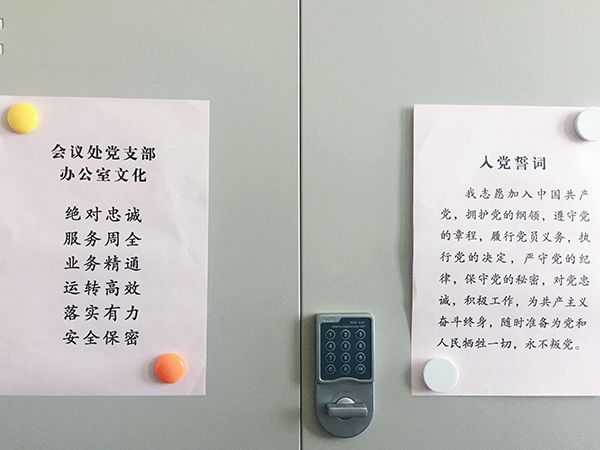 会议处党支部
办公室文化
绝对忠诚
服务周全
业务精通
运转高效
落实有力
安全保密
入党誓词
我志愿加入中国共产
党，拥护党的纲领，遵守党
的章程，履行党员义务，执
行党的决定，严守党的纪
律，保守党的秘密，对党忠
诚，积极工作，为共产主义
奋斗终身，随时准备为党和
人民牺牲一切，永不叛党。
1 2 3
4 5 6
7 8 9